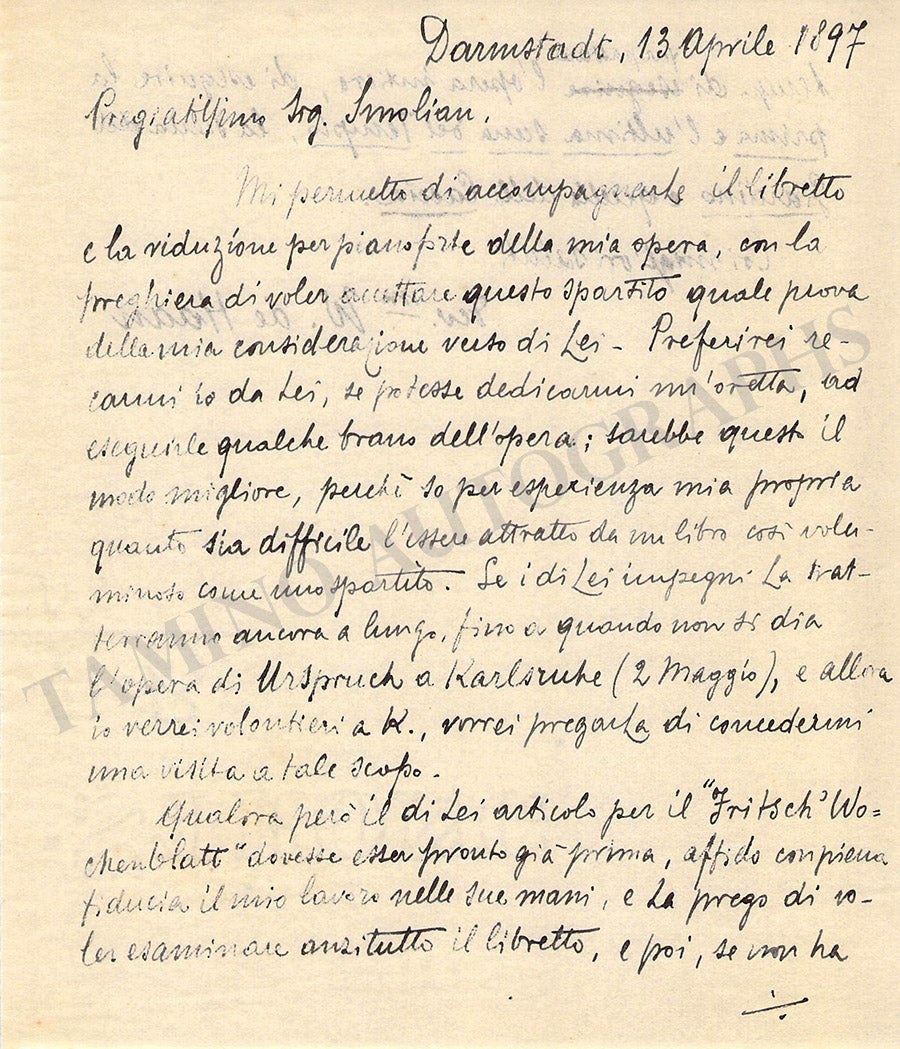 Darmstadt, 13 Aprile 1897
Pregiatissimo Sig. Smolian.
Mi permetto di accompagnarle il libretto
e la riduzione per pianoforte della mia opera, con la
preghiera di voler accettare questo spartito quale prova
della mia considerazione verso di Lei - Preferirei re-
carmi io da Lei, se potesse dedicarmi un'oretta, ad
eseguirle qualche brano dell'opera; sarebbe questo il
modo migliore, perchè so per esperienza mia propria
quanto sia difficile l'essere attratto da un libro così volu-
minoso come uno spartito. Se i di Lei impegni La trat-
terranno ancora a lungo, fino a quando non si dia
l'opera di Urspruch a Karlsruhe (2 Maggio), e allora
io verrei volontieri a K., vorrei pregarLa di concedermi
una visita a tale scopo.
Qualora però il di Lei articolo per il "Fritsch' Wo=
chenblatt" dovesse esser pronto già prima, affido con piena
fiducia il mio lavoro nelle sue mani, e La prego di vo-
ler esaminare anzitutto il libretto, e poi, se non ha
TAMINO AUTOGRAPHS